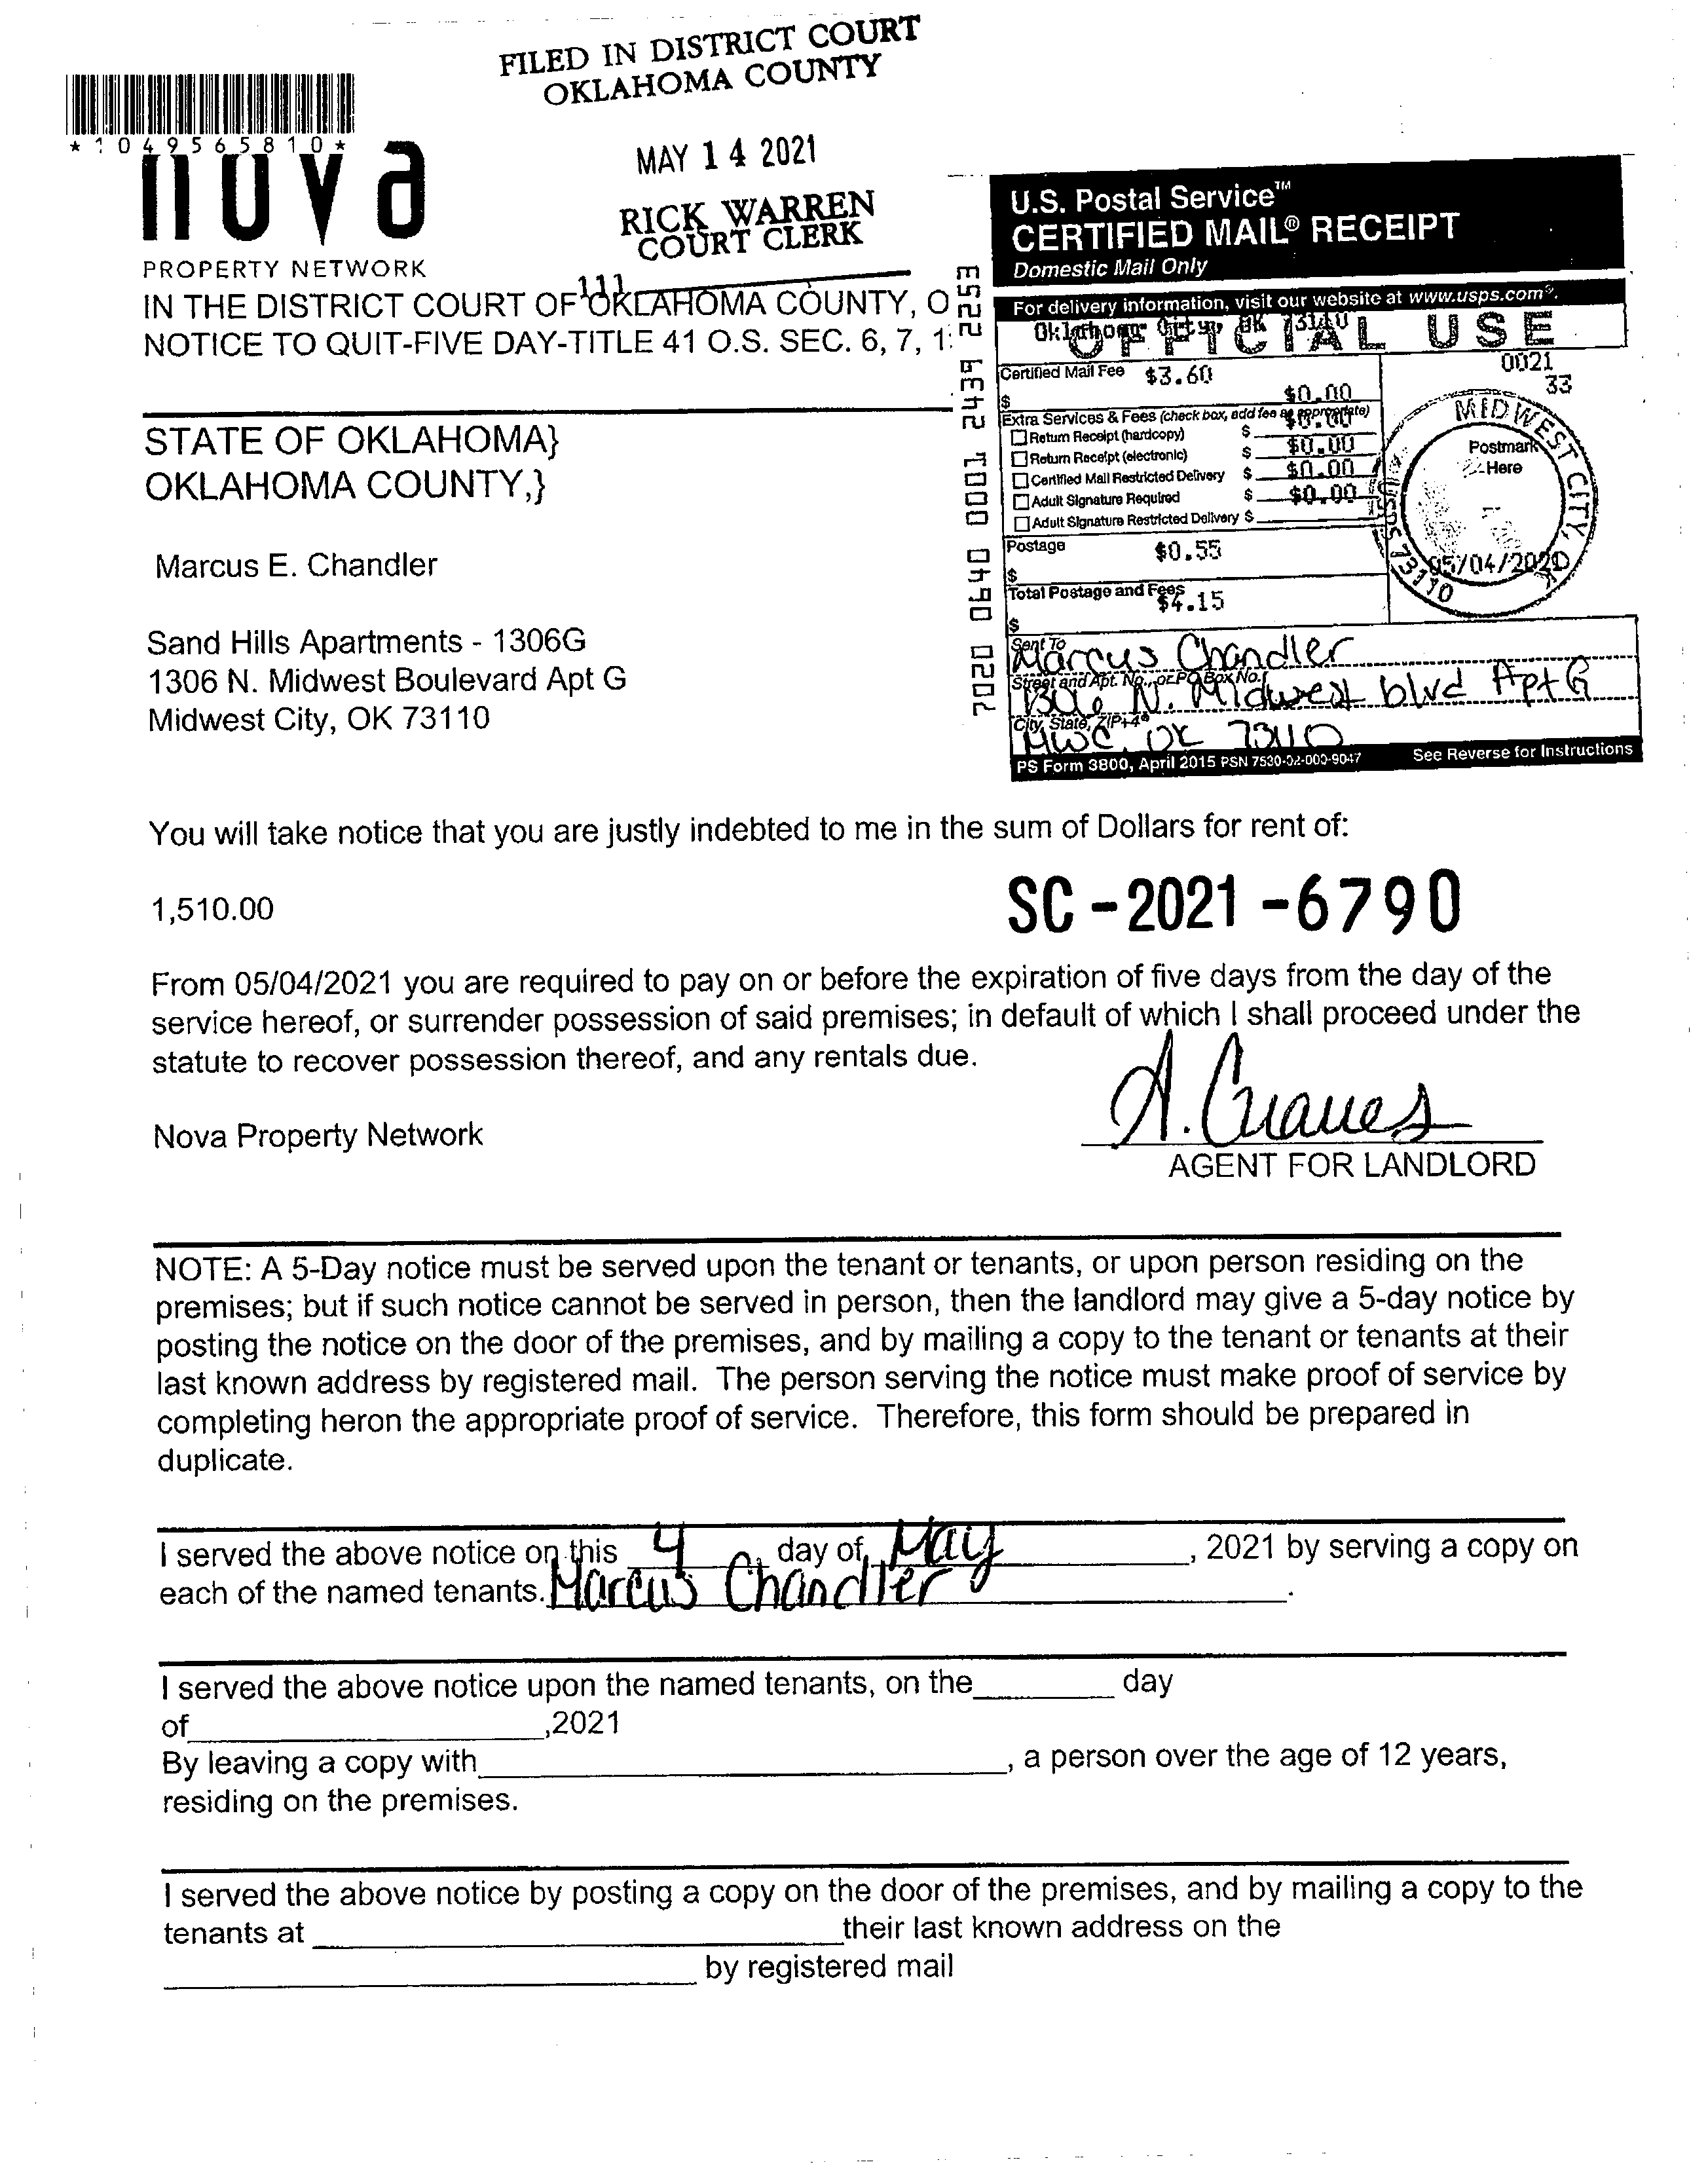 FILED IN DISTRICT COURT
OKLAHOMA COUNTY
MAY 14 2021
RICK WARREN
COURT CLERK
111
*1049565810*
nova
PROPERTY NETWORK
IN THE DISTRICT COURT OF OKLAHOMA COUNTY, O
NOTICE TO QUIT-FIVE DAY-TITLE 41 O.S. SEC. 6, 7, 1
STATE OF OKLAHOMA}
OKLAHOMA COUNTY,}
Marcus E. Chandler
Sand Hills Apartments - 1306G
1306 N. Midwest Boulevard Apt G
Midwest City, OK 73110
7020 0640 0001 2439 2253
U.S. Postal Service™
CERTIFIED MAIL® RECEIPT
Domestic Mail Only
For delivery information, visit our website at www.usps.com®.
Oklahoma City, OK 73110
OFFICIAL USE
Certified Mail Fee $3.60
$ $0.00
0021
33
Extra Services & Fees (check box, add fee as appropriate)
Return Receipt (hardcopy) $ $0.00
Return Receipt (electronic) $ $0.00
Certified Mail Restricted Delivery $ $0.00
Adult Signature Required $ $0.00
Adult Signature Restricted Delivery $
Postage $0.55
$
Total Postage and Fees $4.15
$
MIDWEST CITY, OK
Postmark
Here
USPS 73110
Sent To
Marcus Chandler
Street and Apt. No., or PO Box No.
1306 N. Midwest blvd Apt G
City, State, ZIP+4®
MWC, OK 73110
PS Form 3800, April 2015 PSN 7530-02-000-9047 See Reverse for Instructions
You will take notice that you are justly indebted to me in the sum of Dollars for rent of:
1,510.00
SC-2021-6790
From 05/04/2021 you are required to pay on or before the expiration of five days from the day of the
service hereof, or surrender possession of said premises; in default of which I shall proceed under the
statute to recover possession thereof, and any rentals due.
Nova Property Network
A.
AGENT FOR LANDLORD
NOTE: A 5-Day notice must be served upon the tenant or tenants, or upon person residing on the
premises; but if such notice cannot be served in person, then the landlord may give a 5-day notice by
posting the notice on the door of the premises, and by mailing a copy to the tenant or tenants at their
last known address by registered mail. The person serving the notice must make proof of service by
completing heron the appropriate proof of service. Therefore, this form should be prepared in
duplicate.
I served the above notice on this 4 day of May, 2021 by serving a copy on
each of the named tenants. Marcus Chandler.
I served the above notice upon the named tenants, on the day
of ,2021
By leaving a copy with , a person over the age of 12 years,
residing on the premises.
I served the above notice by posting a copy on the door of the premises, and by mailing a copy to the
tenants at their last known address on the
by registered mail